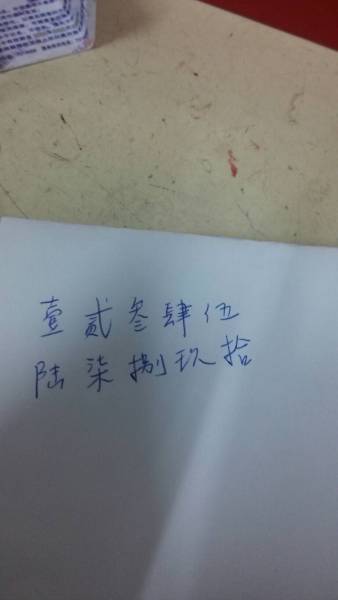 壹贰叁肆伍
陆柒捌玖拾